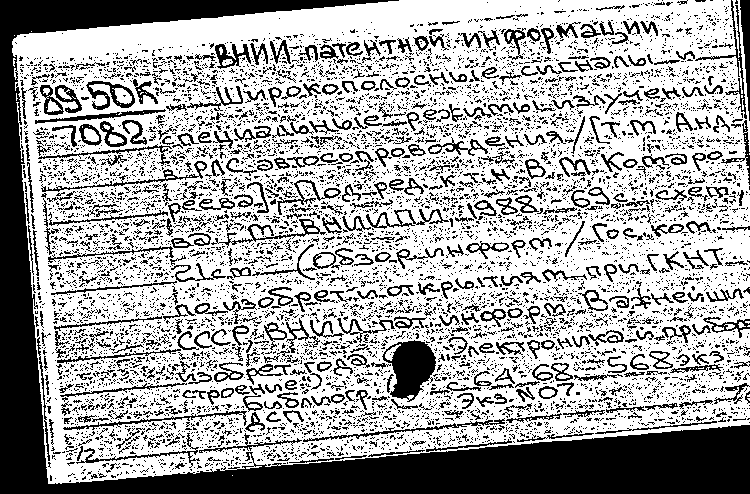 ВНИИ патентной информации
89-50К
7082
Широкополосные сигналы и
специальные режимы излучений
в РЛС автосопровождения / [Т.М. Анд-
реева]; Под ред. к.т.н. В.М. Комаро-
ва. М. ВНИИПИ, 1988. - 69 с. схем.;
21 см. (Обзор. информ. / Гос. ком.
по изобрет. и открытиям при ГКНТ
СССР, ВНИИ пат. информ. Важнейшие
изобрет. года Электроника и прибор
строение")
Библиогр. с 64-68. - 568 экз
ДСП Экз. N 07.
12